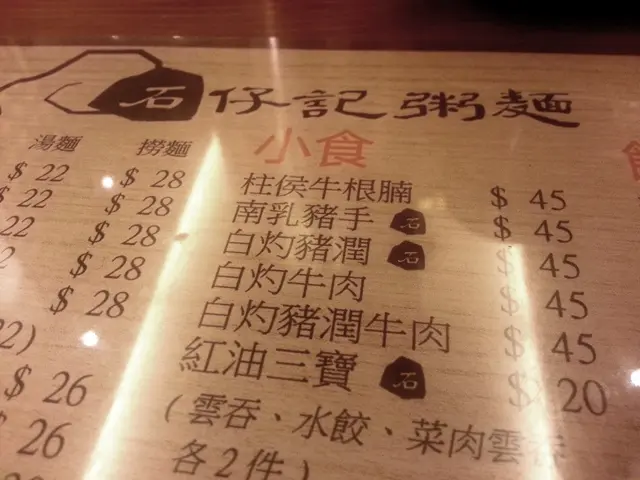 石仔記粥麵
湯麵 撈麵
小食
$ 22 $ 28 柱侯牛根腩 $ 45
$ 22 $ 28 南乳豬手 石 $ 45
22 $ 28 白灼豬潤 石 $ 45
$ 28 白灼牛肉 $ 45
$ 28 白灼豬潤牛肉 $ 45
22) 紅油三寶 石 $ 20
$ 26 (雲吞、水餃、菜肉雲吞
$ 26 各2件)